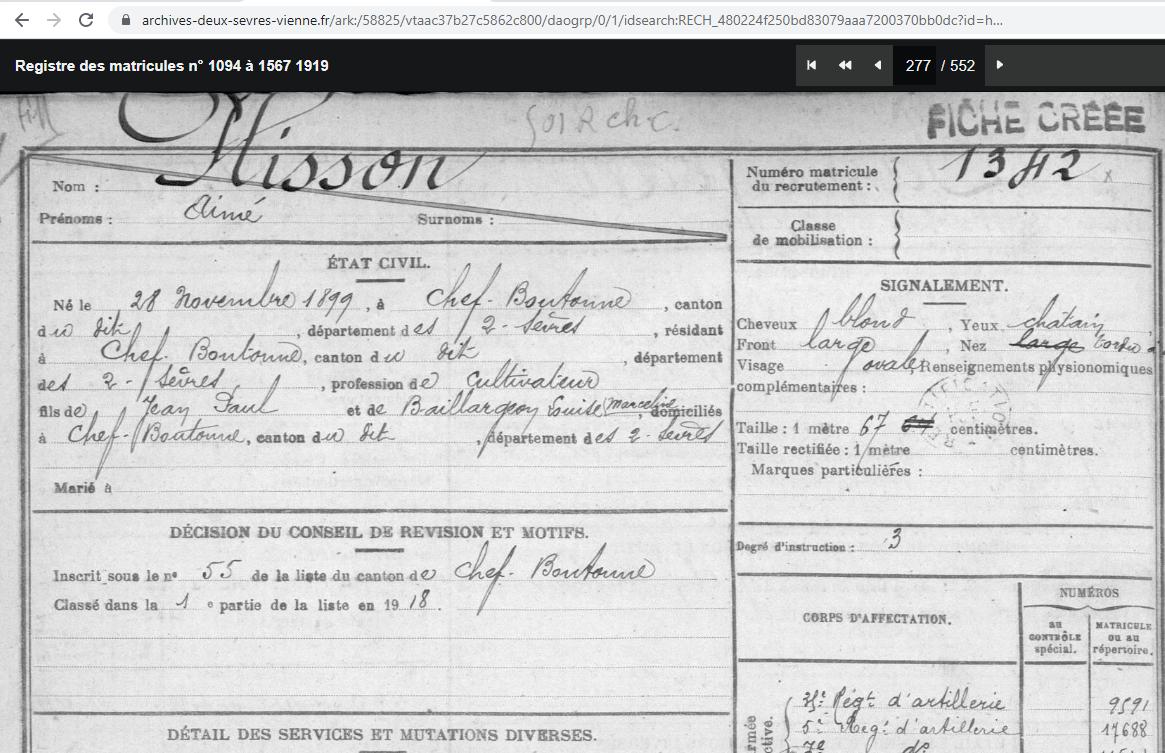 archives-deux-sevres-vienne.fr/ark:/58825/vtaac37b27c5862c800/daogrp/0/1/idsearch:RECH_480224f250bd83079aaa7200370bb0dc?id=h...
Registre des matricules n° 1094 à 1567 1919
277 / 552
FICHE CRÉÉE
Nom :
Prénoms : Aimé Surnoms :
Numéro matricule
du recrutement : 1342
Classe
de mobilisation :
ÉTAT CIVIL.
Né le 28 Novembre 1899, à Chef-Boutonne, canton
du dit, département des 2-Sèvres, résidant
à Chef-Boutonne, canton du dit, département
des 2-Sèvres, profession de Cultivateur
fils de Jean Paul et de Baillargeon Louise Marceline, domiciliés
à Chef-Boutonne, canton du dit, département des 2-Sèvres
Marié à
SIGNALEMENT.
Cheveux blond, Yeux chatain,
Front large, Nez large tordu à
Visage ovale Renseignements physionomiques
complémentaires :
Taille : 1 mètre 67 centimètres.
Taille rectifiée : 1 mètre centimètres.
Marques particulières :
Degré d'instruction : 3
DÉCISION DU CONSEIL DE REVISION ET MOTIFS.
Inscrit sous le n° 55 de la liste du canton de Chef-Boutonne
Classé dans la 1e partie de la liste en 1918
DÉTAIL DES SERVICES ET MUTATIONS DIVERSES.
CORPS D'AFFECTATION.
NUMÉROS
au
CONTRÔLE
spécial.
MATRICULE
ou au
répertoire.
Régt d'artillerie 9591
5e Regt d'artillerie 17688